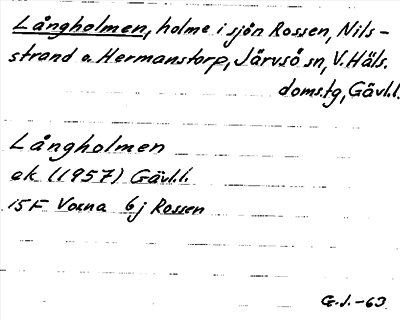 Långholmen, holme i sjön Rossen, Nils-
strand o. Hermanstorp, Järvsö sn, V. Häls.
domstg, Gävl.l.
Långholmen
ek (1957) Gävl.l.
15F Voxna 6j Rossen
G.J. -63